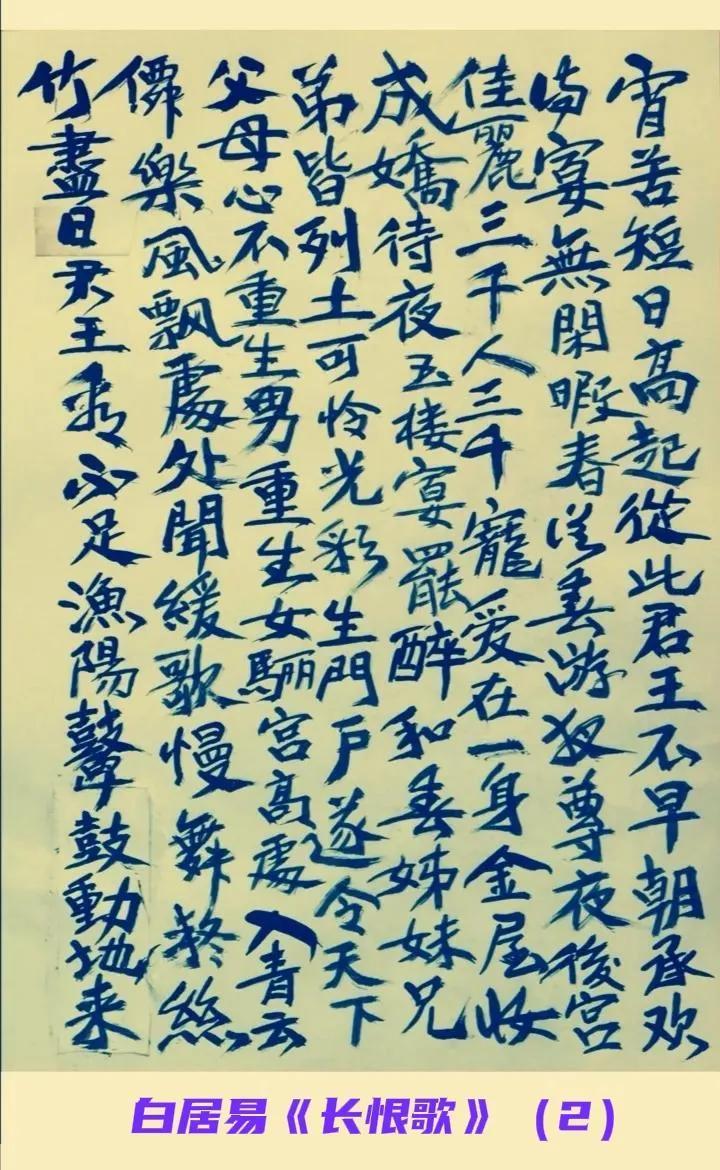 宵苦短日高起從此君王不早朝承欢
侍宴無閑暇春从春游夜尊夜後宮
佳麗三千人三千寵爱在一身金屋妝
成嬌待夜玉楼宴罷醉和春姊妹兄
弟皆列土可怜光彩生門户遂令天下
父母心不重生男重生女驪宫高處入青云
僊樂風飄處处聞緩歌慢舞凝絲
竹盡日君王看不足漁陽鼙鼓動地来
白居易《长恨歌》（2）